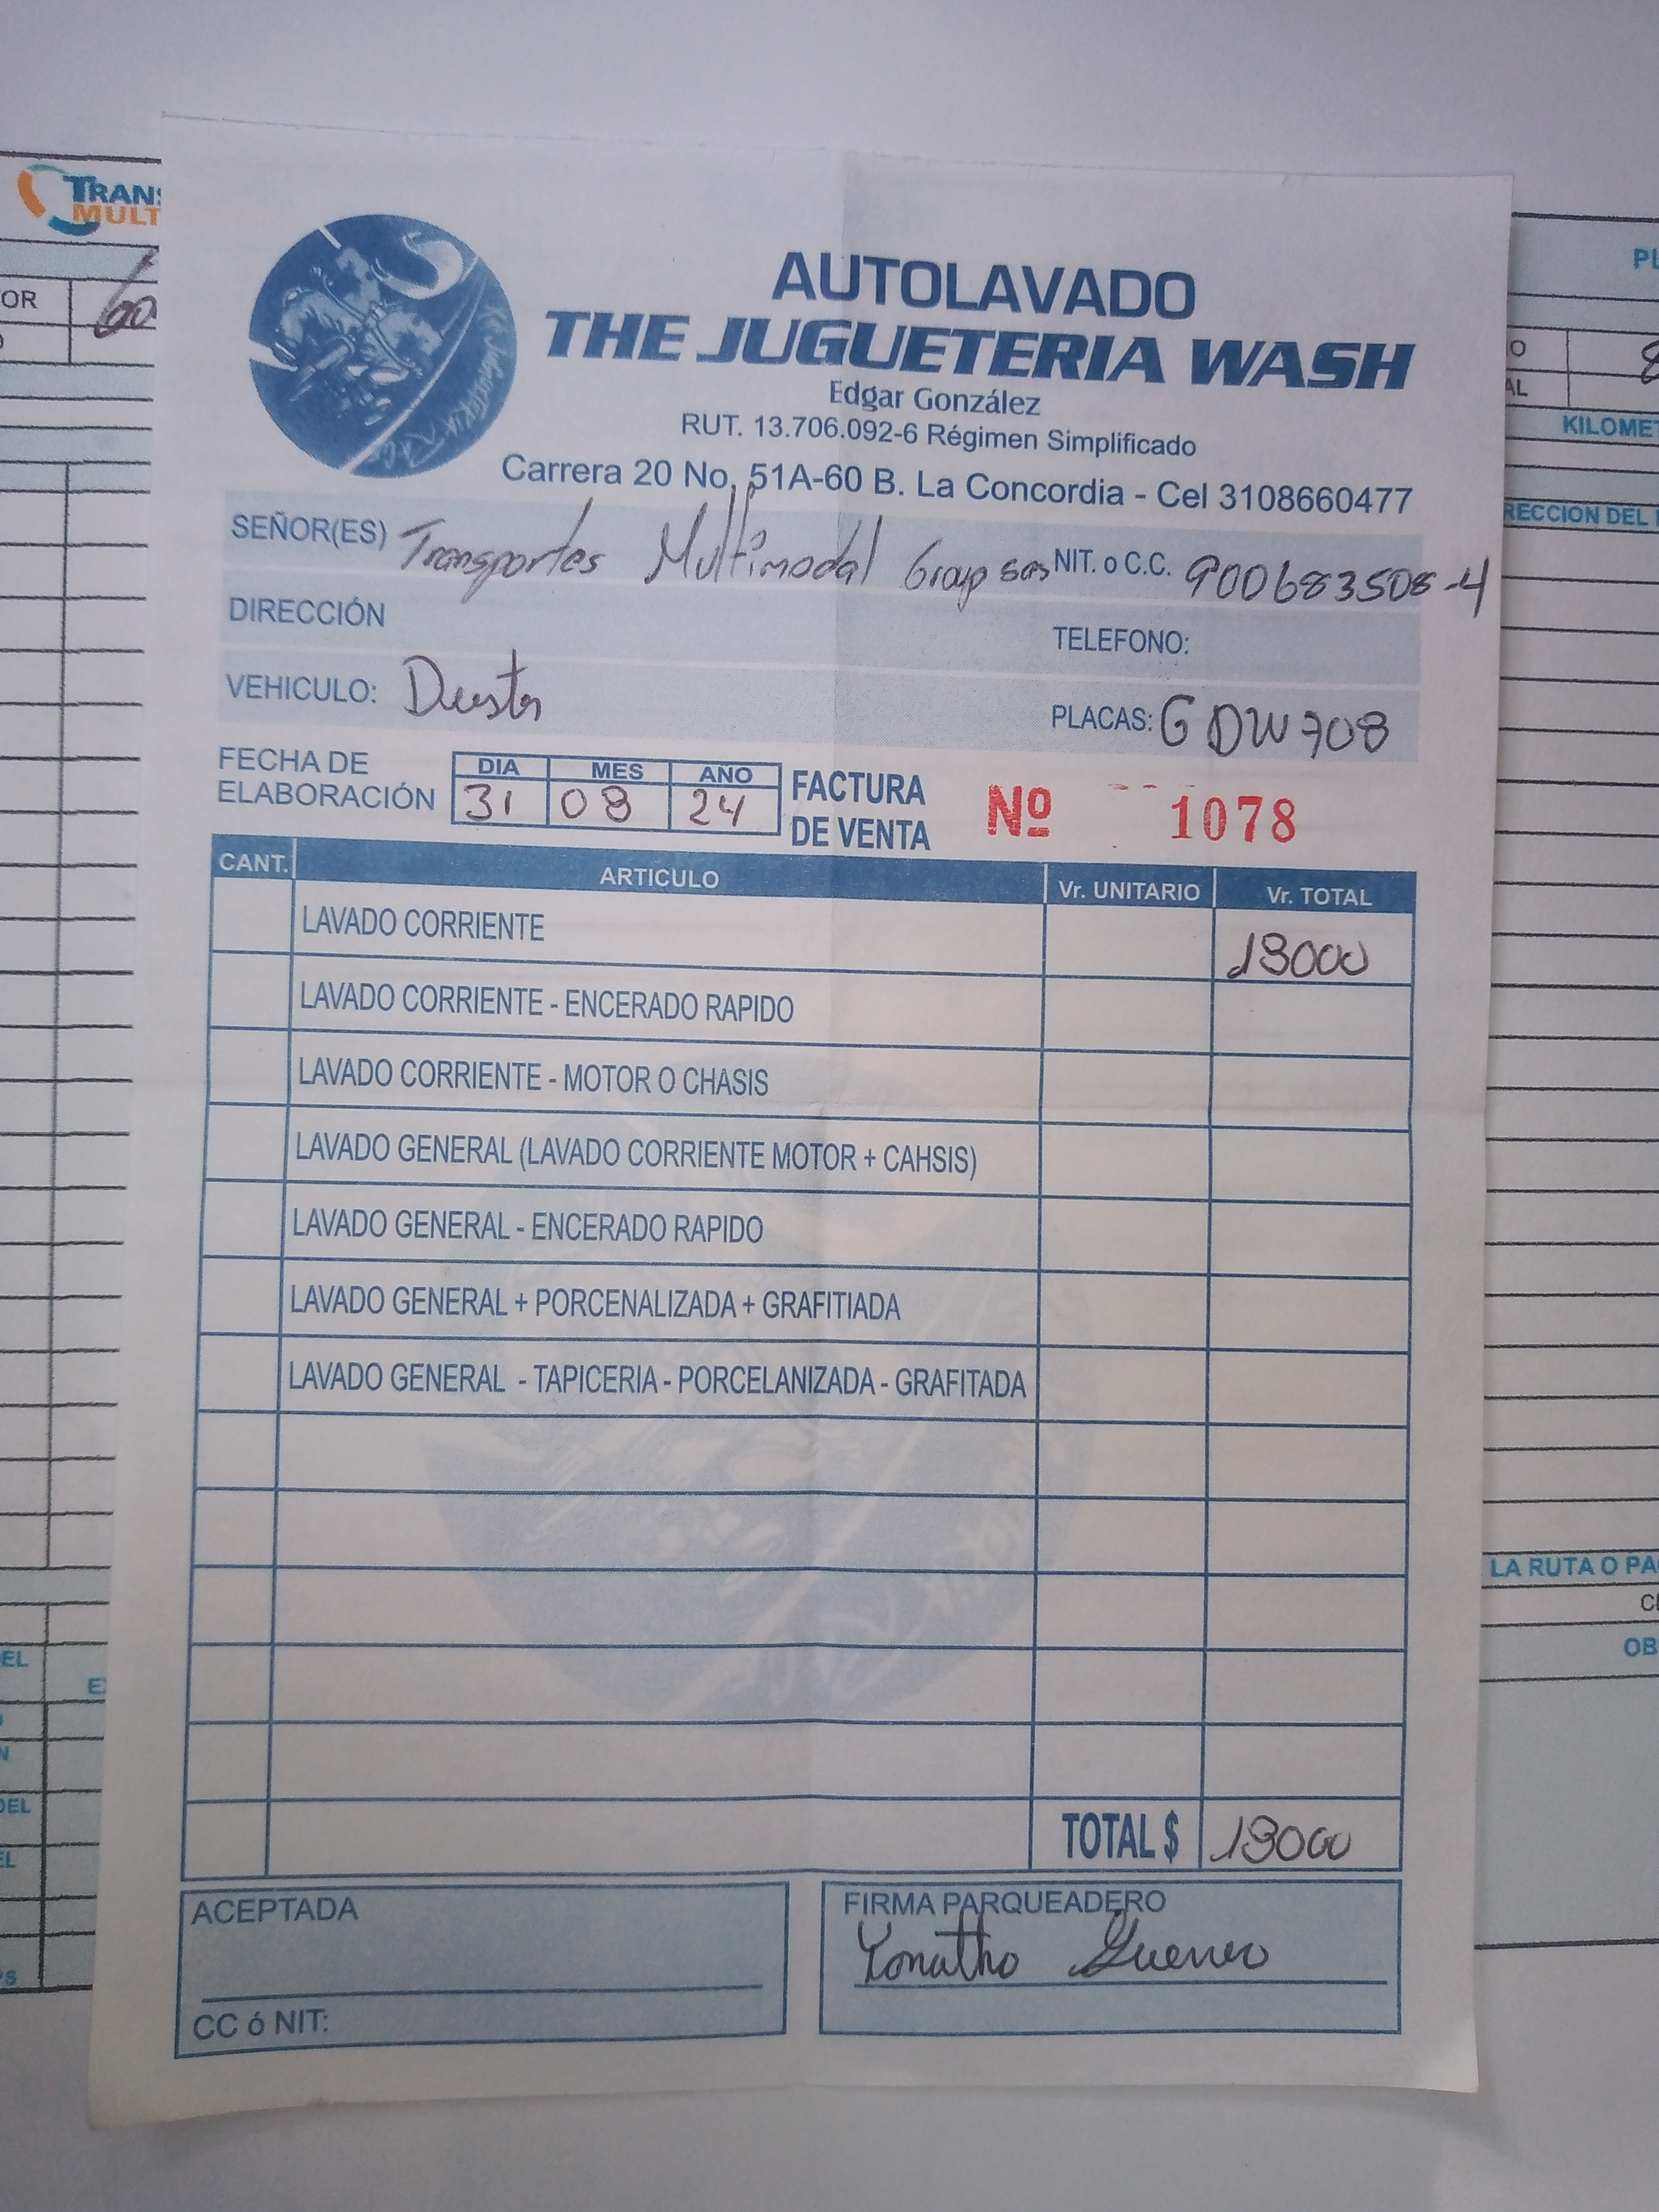 TRANS
MULT
OR
PL
O
AL
KILOMET
RECCION DEL
AUTOLAVADO
THE JUGUETERIA WASH
Edgar González
RUT. 13.706.092-6 Régimen Simplificado
Carrera 20 No. 51A-60 B. La Concordia - Cel 3108660477
SEÑOR(ES) Transportes Multimodal Group sas NIT. o C.C. 900683508-4
DIRECCIÓN TELEFONO:
VEHICULO: Duster PLACAS: GDW708
FECHA DE ELABORACIÓN DIA MES AÑO
31 08 24
FACTURA DE VENTA Nº 1078
CANT. ARTICULO Vr. UNITARIO Vr. TOTAL
LAVADO CORRIENTE
LAVADO CORRIENTE - ENCERADO RAPIDO
LAVADO CORRIENTE - MOTOR O CHASIS
LAVADO GENERAL (LAVADO CORRIENTE MOTOR + CAHSIS)
LAVADO GENERAL - ENCERADO RAPIDO
LAVADO GENERAL + PORCENALIZADA + GRAFITIADA
LAVADO GENERAL - TAPICERIA - PORCELANIZADA - GRAFITADA
TOTAL $
ACEPTADA
CC ó NIT:
FIRMA PARQUEADERO
LA RUTA O PA
OB
EL
DEL
EL